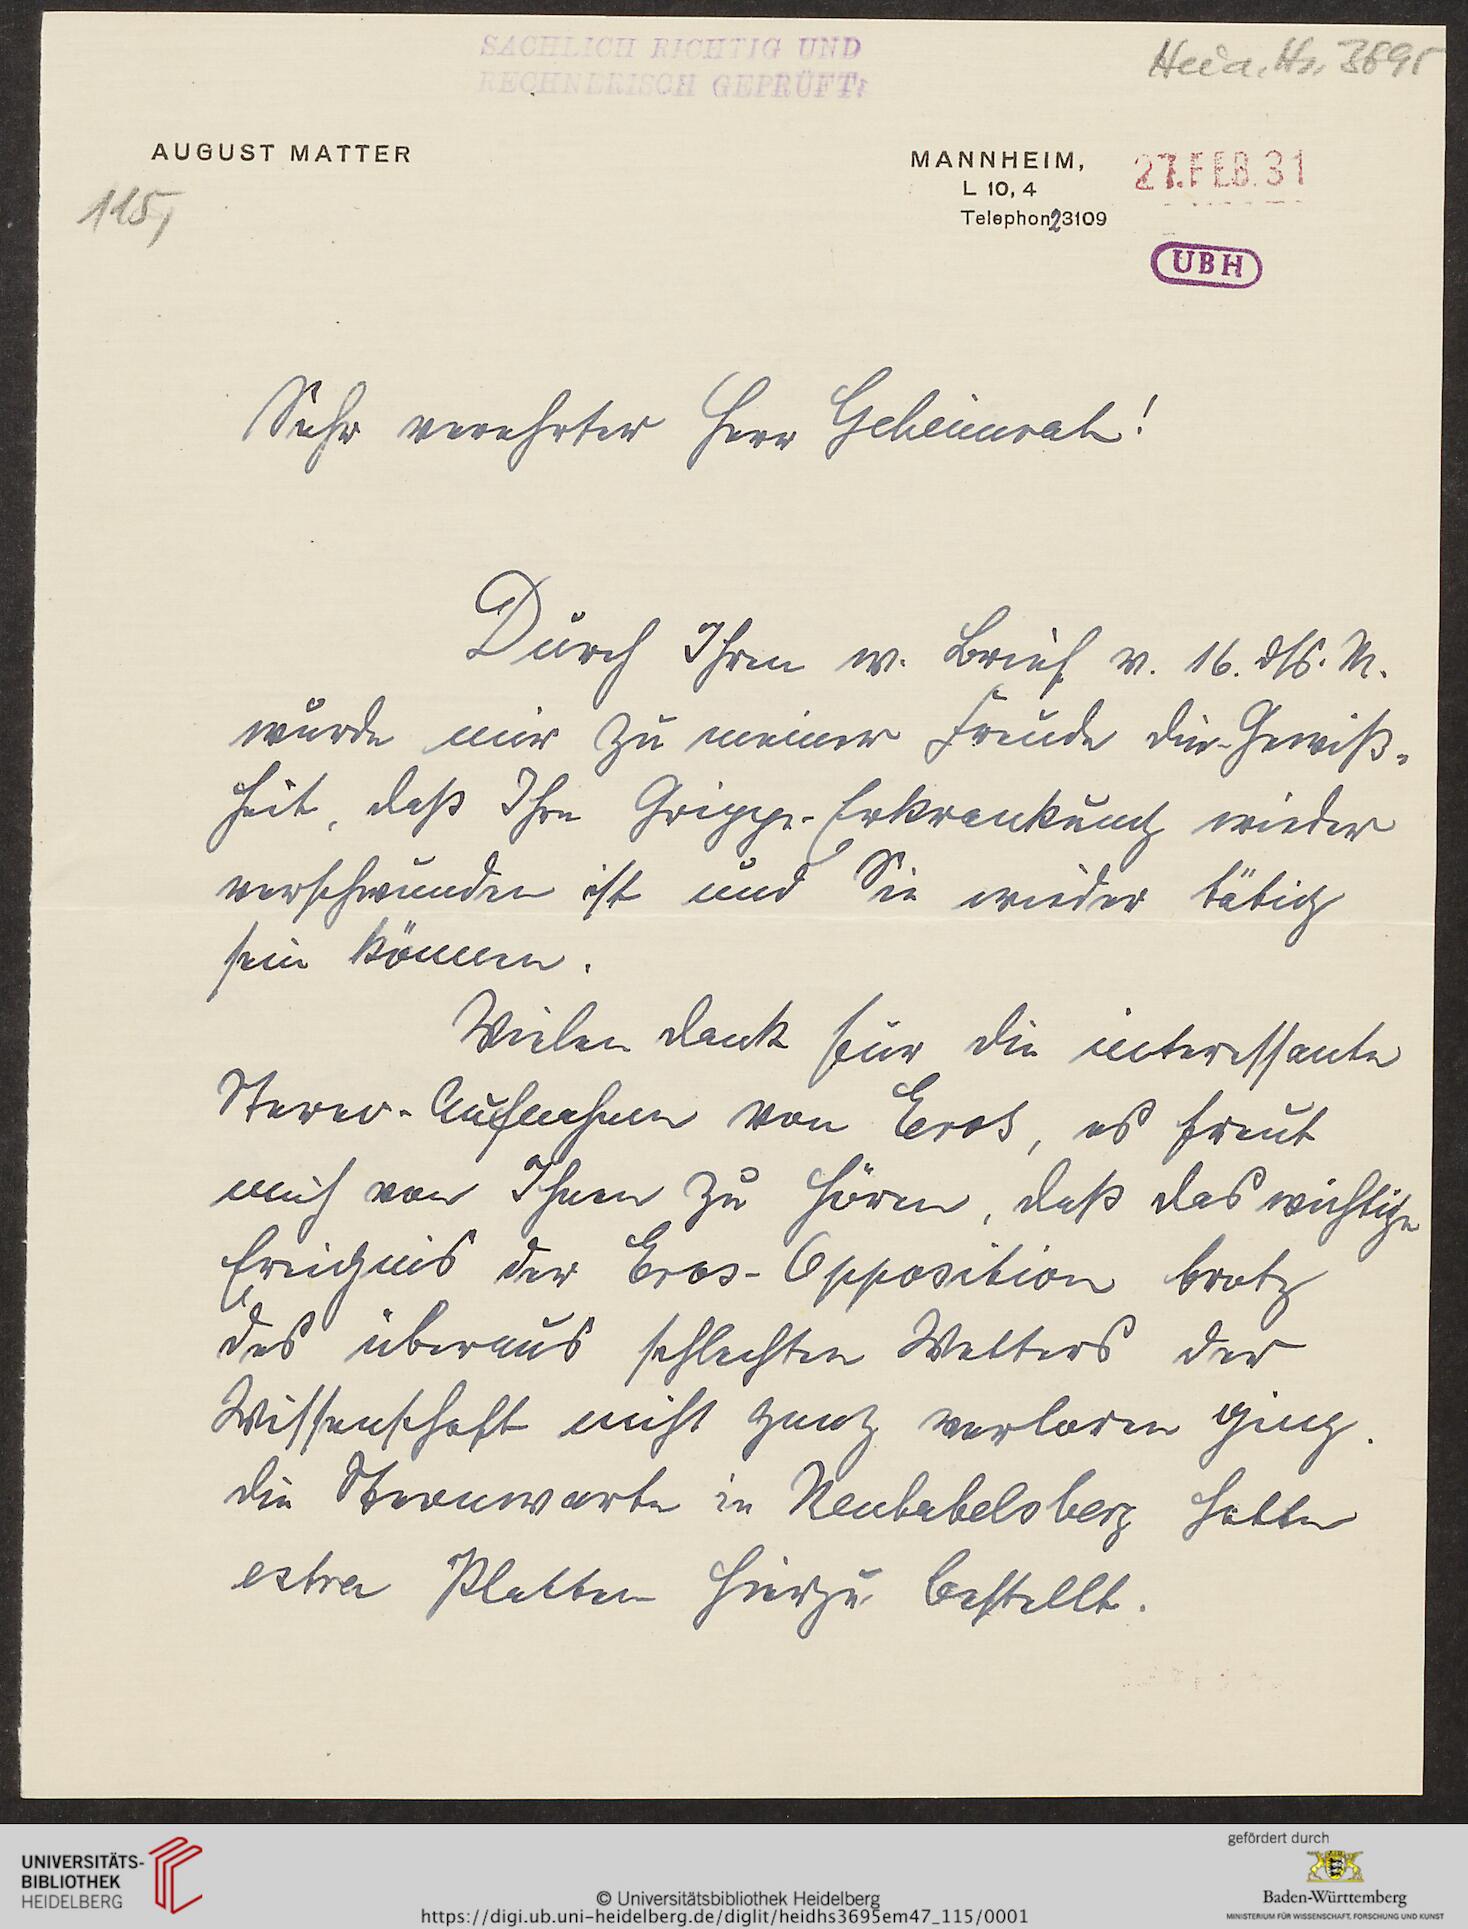 SACHLICH RICHTIG UND
RECHNERISCH GEPRÜFT:
Heid. Hs. 3695
AUGUST MATTER
MANNHEIM, 27. FEB. 31
L 10, 4
Telephon 23109
115,
UBH
Sehr verehrter Herr Geheimrat!
Durch Ihren w. Brief v. 16. ds. M.
wurde mir zu meiner Freude die Gewiß-
heit, daß Ihre Grippe-Erkrankung wieder
verschwunden ist und Sie wieder tätig
sein können.
Vielen Dank für die interessante
Stereo-Aufnahme von Eros, es freut
mich von Ihnen zu hören, daß das wichtige
Ereignis der Eros-Opposition trotz
des überaus schlechten Wetters der
Wissenschaft nicht ganz verloren ging.
Die Sternwarte in Neubabelsberg hatte
extra Platten hierzu bestellt.
UNIVERSITÄTS-
BIBLIOTHEK
HEIDELBERG
© Universitätsbibliothek Heidelberg
https://digi.ub.uni-heidelberg.de/diglit/heidhs3695em47_115/0001
gefördert durch
Baden-Württemberg
MINISTERIUM FÜR WISSENSCHAFT, FORSCHUNG UND KUNST